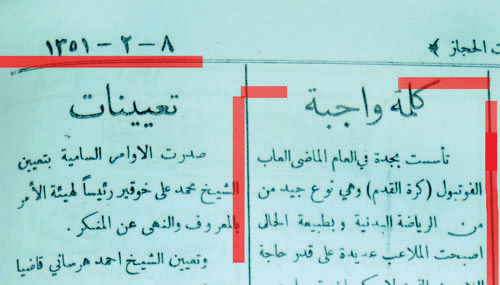 ت الحجاز
٨ - ٢ - ١٣٥١
كلمة واجبة
تأسست بجدة في العام الماضى العاب
الفوتبول (كرة القدم) وهي نوع جيد من
من الرياضة البدنية وبطبيعة الحال
اصبحت الملاعب عديدة على قدر حاجة
تعيينات
صدرت الاوامر السامية بتعيين
الشيخ محمد على خوقير رئيساً لهيئة الأمر
بالمعروف والنهى عن المنكر .
وتعيين الشيخ احمد هرساني قاضيا